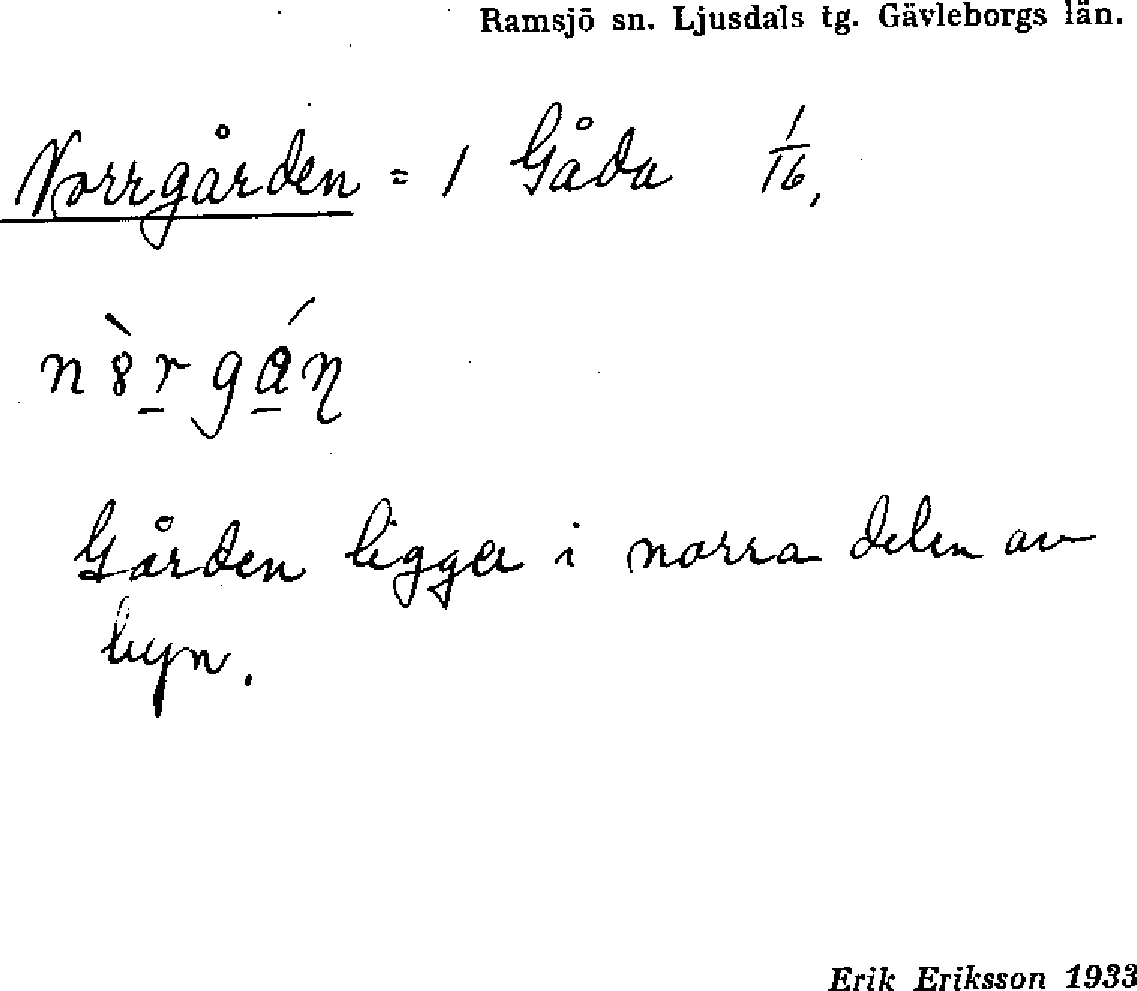 Ramsjö sn. Ljusdals tg. Gävleborgs län.
Norrgården = 1 Gåda 1/16,
n8̀r̲gá̲ŋ
Gården ligger i norra delen av
byn.
Erik Eriksson 1933